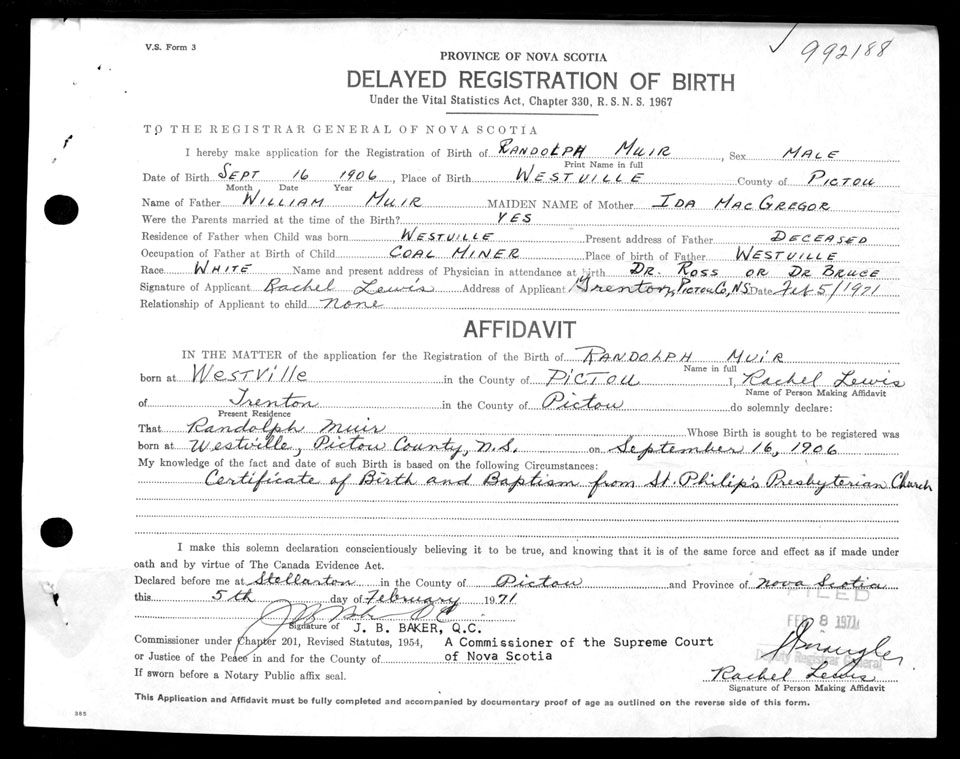 V.S. Form 3
992188
PROVINCE OF NOVA SCOTIA
DELAYED REGISTRATION OF BIRTH
Under the Vital Statistics Act, Chapter 330, R. S. N. S. 1967
TO THE REGISTRAR GENERAL OF NOVA SCOTIA
I hereby make application for the Registration of Birth of RANDOLPH MUIR, Sex MALE
Print Name in full
Date of Birth SEPT 16 1906, Place of Birth WESTVILLE County of PICTOU
Month Date Year
Name of Father WILLIAM MUIR MAIDEN NAME of Mother IDA MACGREGOR
Were the Parents married at the time of the Birth? YES
Residence of Father when Child was born WESTVILLE Present address of Father DECEASED
Occupation of Father at Birth of Child COAL MINER Place of birth of Father WESTVILLE
Race WHITE Name and present address of Physician in attendance at birth DR. ROSS OR DR BRUCE
Signature of Applicant Rachel Lewis Address of Applicant Trenton, PICTOU Co, NS Date Feb 5/1971
Relationship of Applicant to child None
AFFIDAVIT
IN THE MATTER of the application for the Registration of the Birth of RANDOLPH MUIR
Name in full
born at WESTVILLE in the County of PICTOU I, Rachel Lewis
Name of Person Making Affidavit
of Trenton in the County of Pictou do solemnly declare:
Present Residence
That Randolph Muir Whose Birth is sought to be registered was
born at Westville, Pictou County, N.S. on September 16, 1906
My knowledge of the fact and date of such Birth is based on the following Circumstances:
Certificate of Birth and Baptism from St. Philip's Presbyterian Church
I make this solemn declaration conscientiously believing it to be true, and knowing that it is of the same force and effect as if made under
oath and by virtue of The Canada Evidence Act.
Declared before me at Stellarton in the County of Pictou and Province of Nova Scotia
this 5th day of February 1971
FILED
FEB 8 1971
Signature of J. B. BAKER, Q.C.
Commissioner under Chapter 201, Revised Statutes, 1954, A Commissioner of the Supreme Court
or Justice of the Peace in and for the County of of Nova Scotia
Deputy Registrar General
If sworn before a Notary Public affix seal.
Rachel Lewis
Signature of Person Making Affidavit
This Application and Affidavit must be fully completed and accompanied by documentary proof of age as outlined on the reverse side of this form.
365